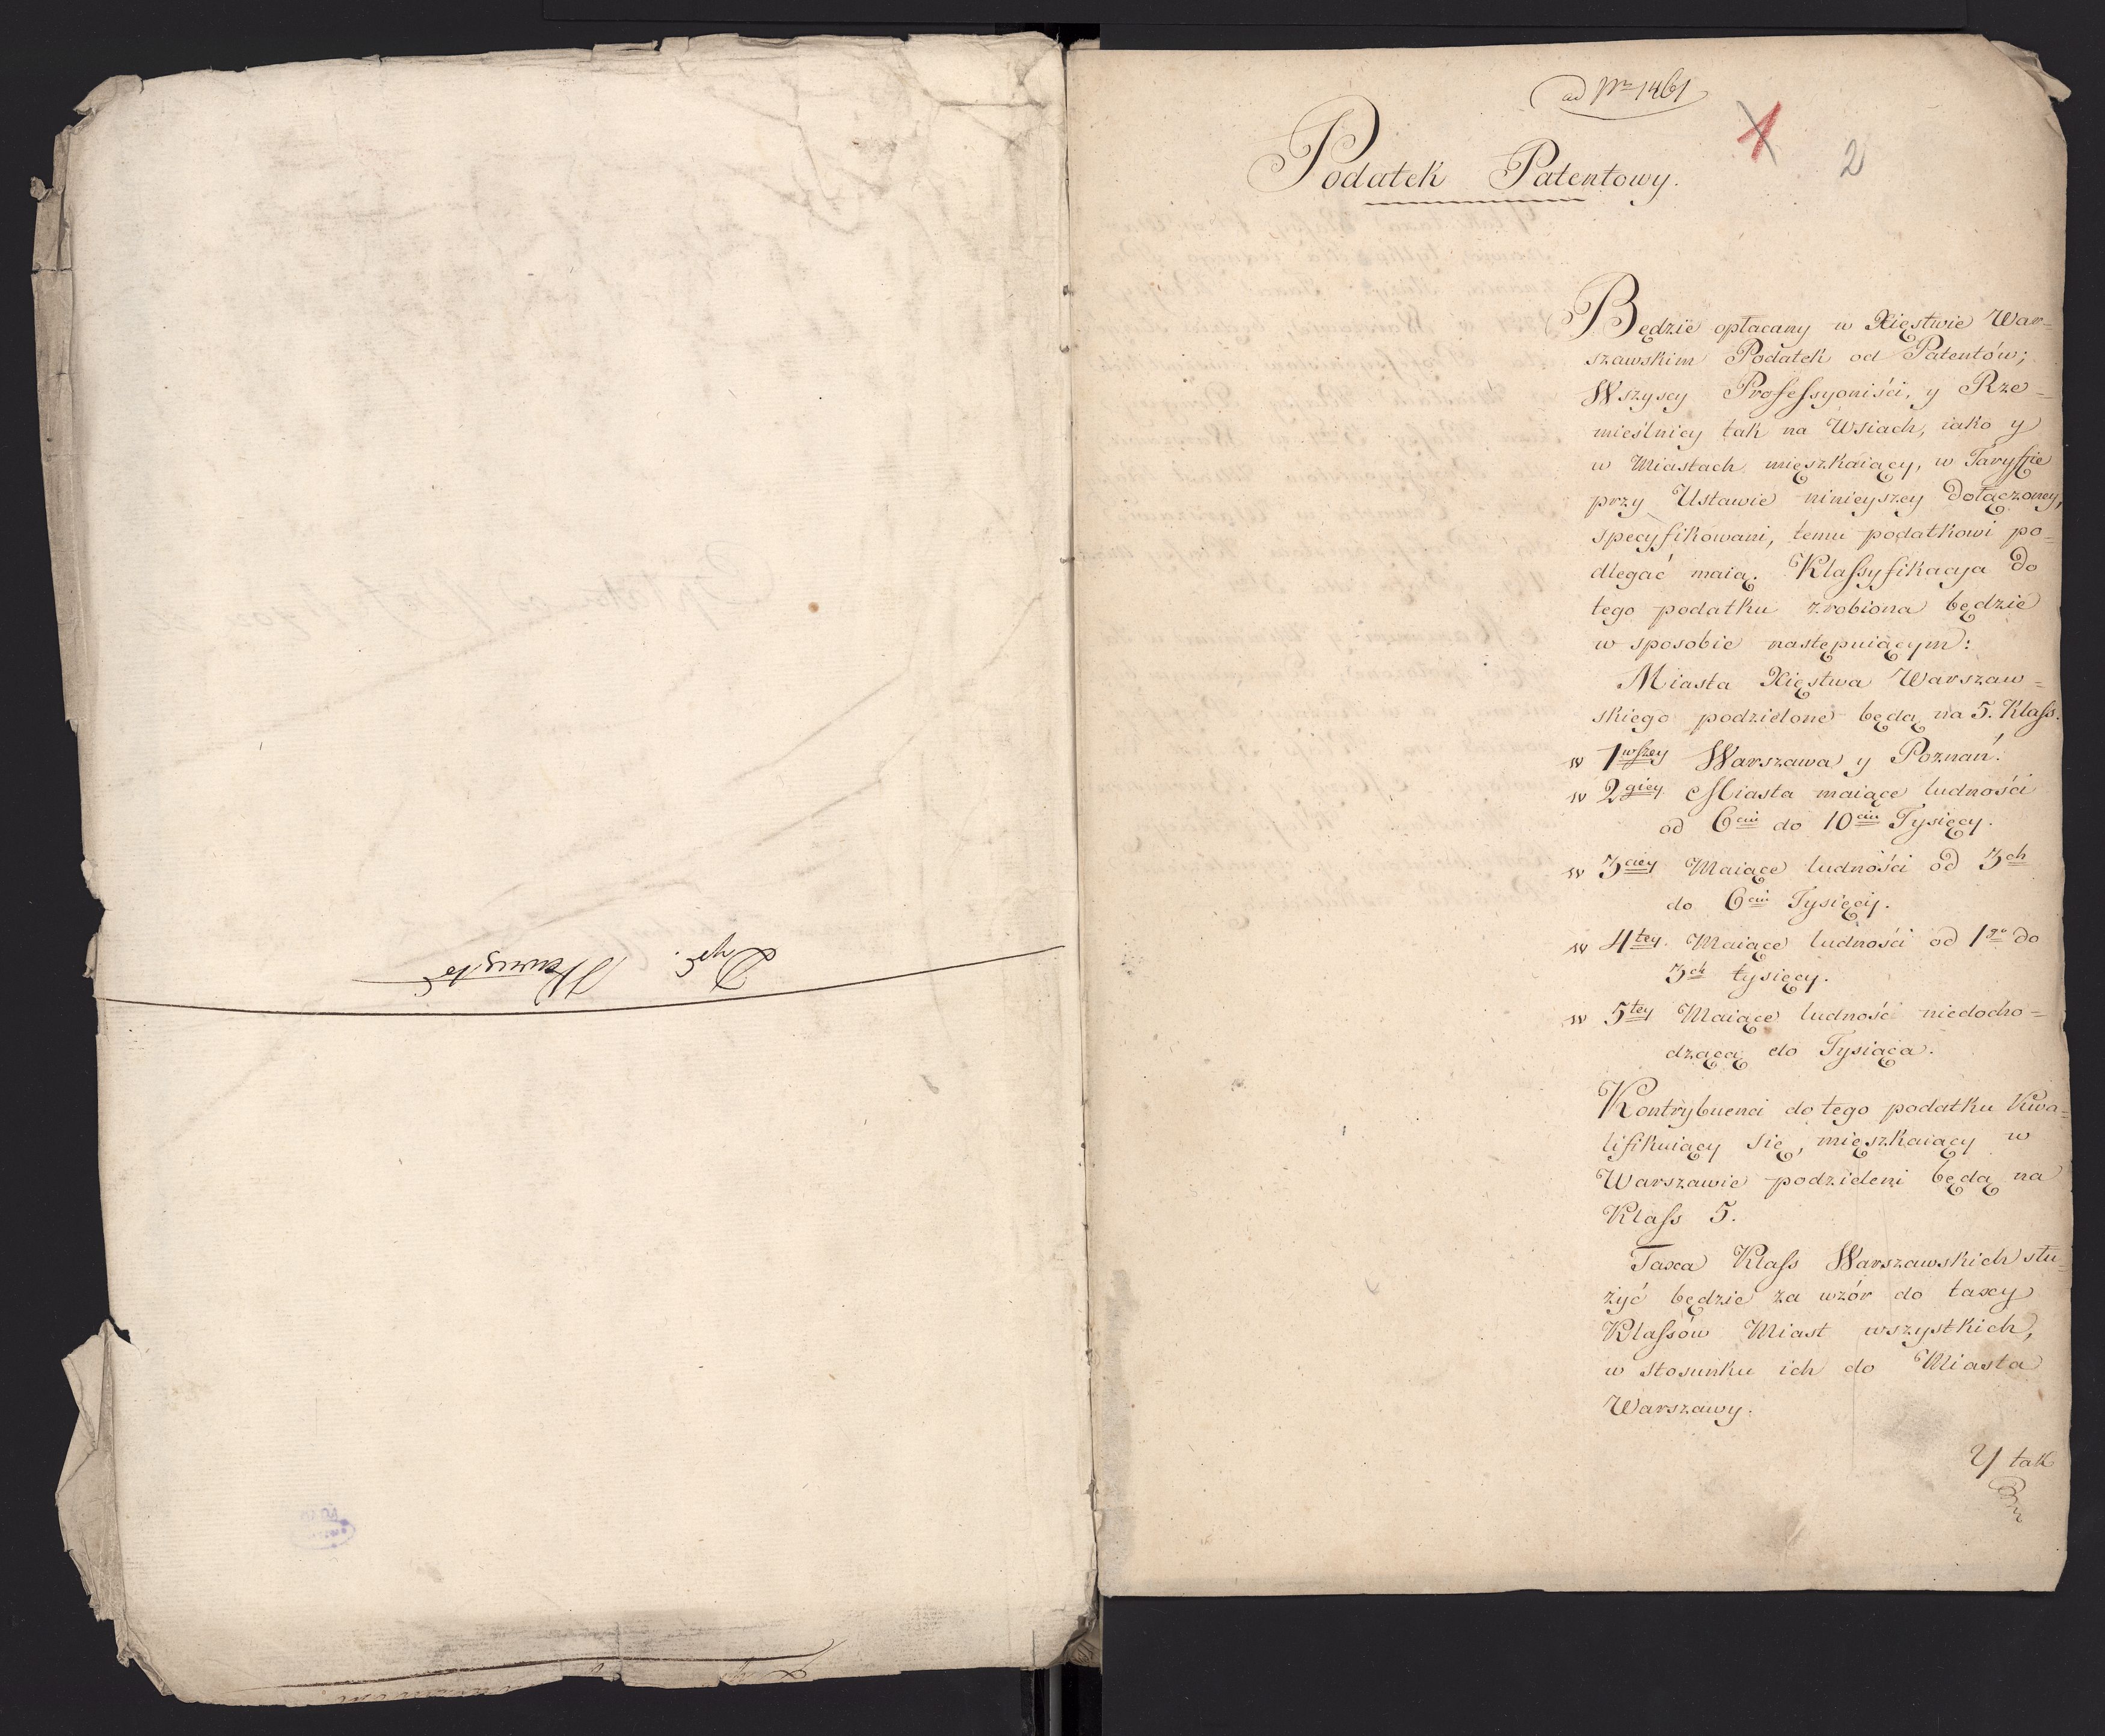 ad Nr 1461
1
2
Podatek Patentowy.
Będzie opłacany w Xięstwie War=
szawskim Podatek od Patentów;
Wszyscy Professyoniści, y Rze=
mieślnicy tak na Wsiach, iako y
w Miastach mięszkaiący, w Taryffie
przy Ustawie ninieyszey dołączoney,
specyfikowani, temu podatkowi po=
dlegać maią. Klassyfikacya do
tego podatku zrobiona będzie
w sposobie następuiącym:
Miasta Xięstwa Warszaw=
skiego podzielone będą na 5. Klass.
w 1wszey Warszawa y Poznań.
w 2giey Miasta maiące ludności
od 6ciu do 10ciu Tysięcy.
w 3ciey Maiące ludności od 3ch
do 6ciu Tysięcy.
w 4tey Maiące ludności od 1go do
3ch tysięcy.
w 5tey Maiące ludność niedocho=
dzącą do Tysiąca.
Kontrybuenci do tego podatku kwa=
lifikuiący się, mięszkaiący w
Warszawie podzieleni będą na
Klass 5.
Taxa Klass Warszawskich słu=
żyć będzie za wzór do taxy
Klassów Miast wszystkich,
w stosunku ich do Miasta
Warszawy.
Y tak